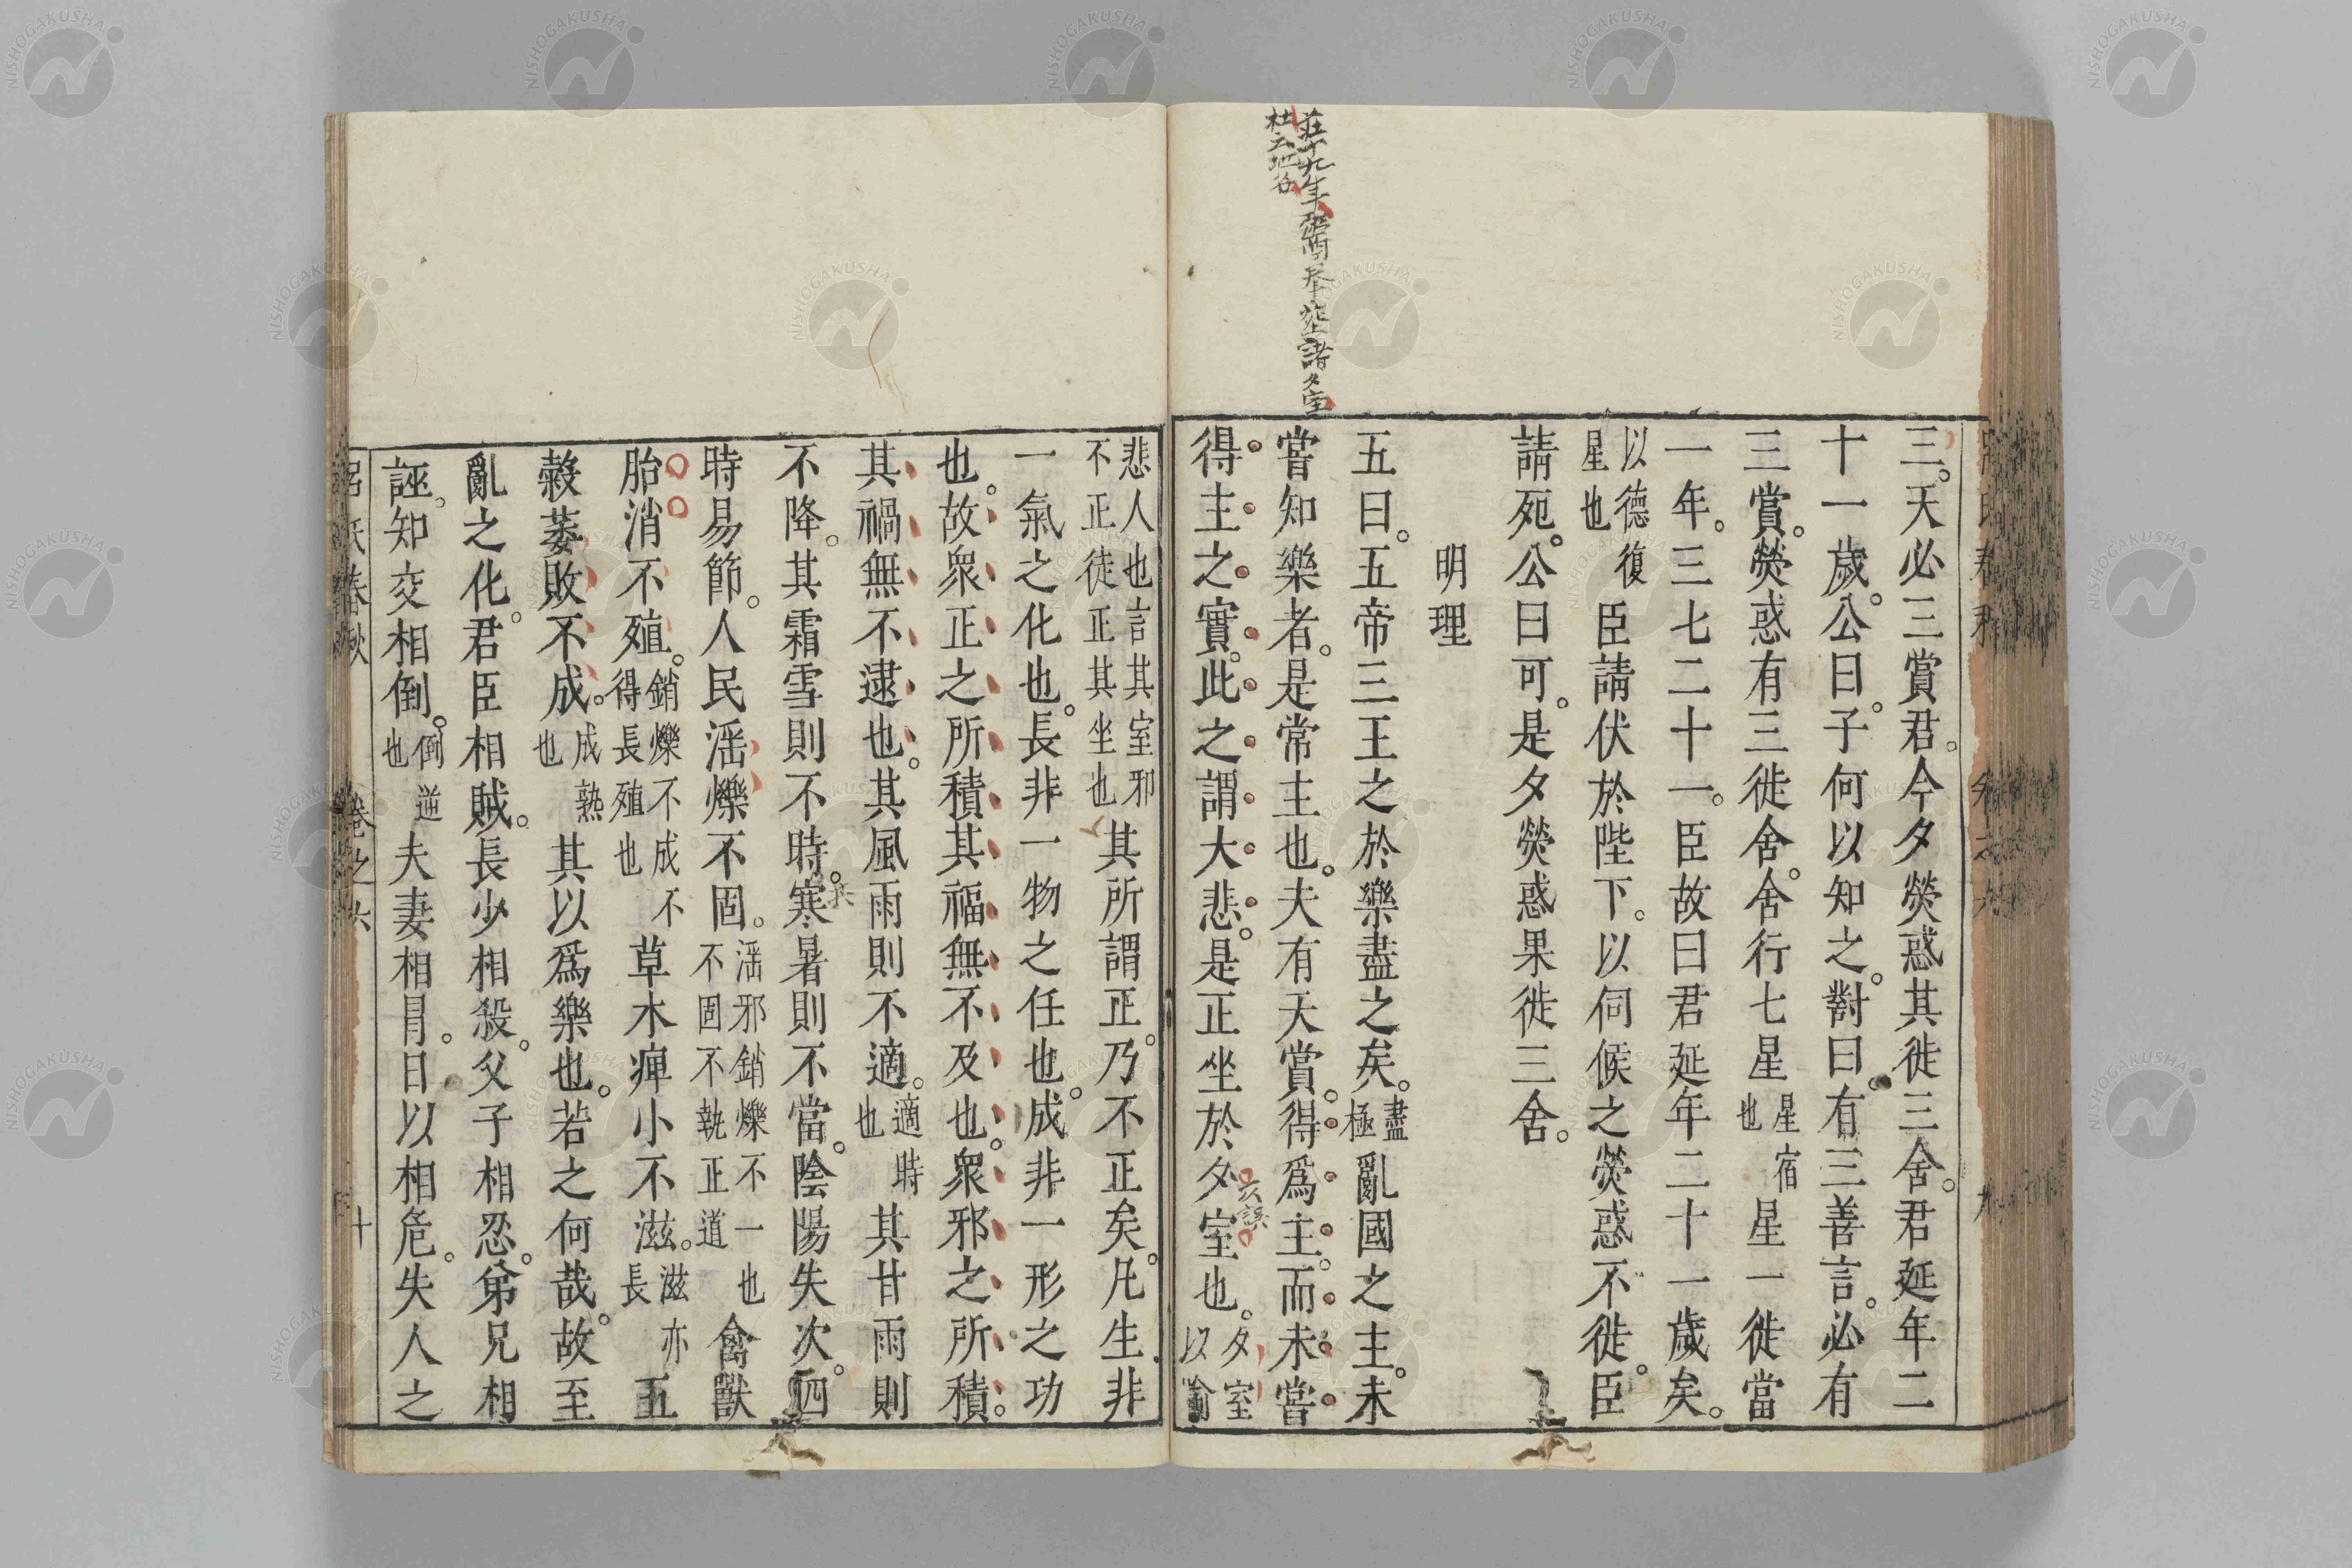 莊十九年鬻拳葬諸夕室
杜云地名
三。天必三賞君。今夕熒惑其徙三舍。君延年二
十一歲。公曰。子何以知之。對曰。有三善言。必有
三賞。熒惑有三徙舍。舍行七星星宿也星一徙當
一年。三七二十一。臣故曰君延年二十一歲矣。
以德復星也臣請伏於陛下。以伺候之熒惑不徙。臣
請死。公曰可。是夕熒惑果徙三舍。
明理
五曰。五帝三王之於樂盡之矣。盡極亂國之主。未
嘗知樂者。是常主也。夫有天賞。得爲主。而未嘗
得主之實。此之謂大悲。是正坐於夕室也。夕室以喻
悲人也言其室邪不正徒正其坐也其所謂正。乃不正矣。凡生非
一氣之化也。長非一物之任也。成非一形之功
也。故衆正之所積其福無不及也。衆邪之所積。
其禍無不逮也。其風雨則不適。適時也其甘雨則
不降。其霜雪則不時。寒暑則不當。陰陽失次。四
時易節。人民淫爍不固。淫邪銷爍不一也不固不執正道禽獸
胎消不殖。銷爍不成不得長殖也草木痺小不滋。滋亦長五
穀萎敗不成。成熟也其以爲樂也。若之何哉。故至
亂之化。君臣相賊。長少相殺。父子相忍。弟兄相
誣。知交相倒。倒逆也夫妻相冒。日以相危。失人之
呂氏春秋 卷之六 十